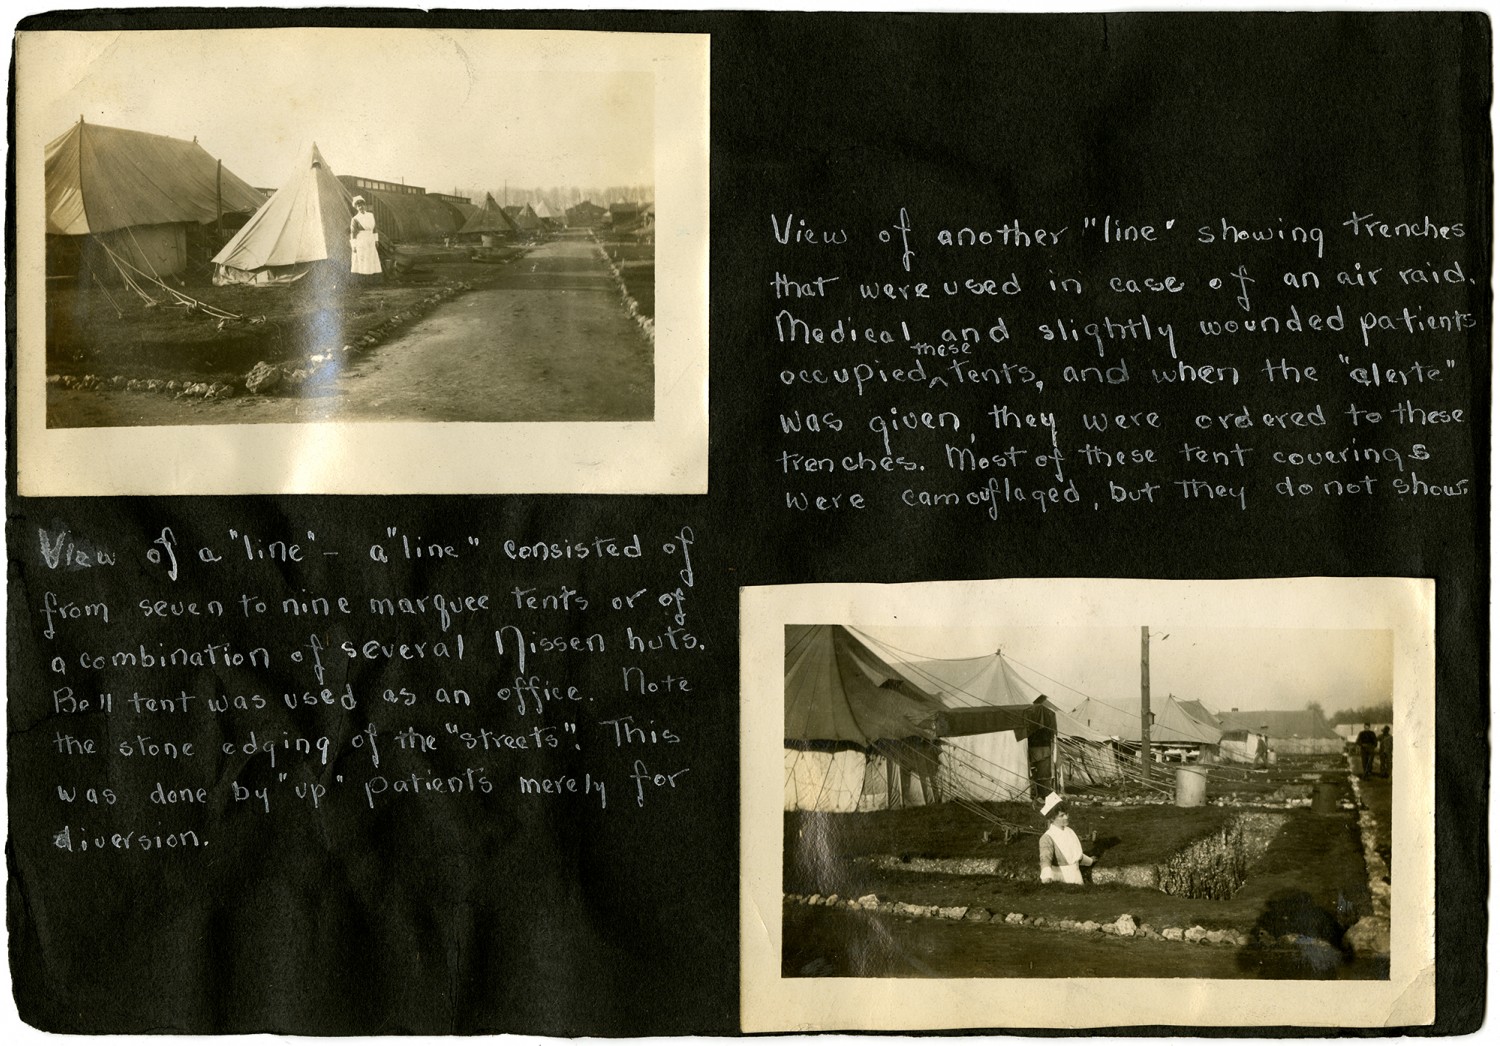 View of a "line" - a "line" consisted of
from seven to nine marquee tents or of
a combination of several Nissen huts.
Bell tent was used as an office. Note
the stone edging of the "streets". This
was done by "up" patients merely for
diversion.
View of another "line" showing trenches
that were used in case of an air raid.
Medical and slightly wounded patients
these
occupied ^ tents, and when the "alerte"
was given, they were ordered to these
trenches. Most of these tent coverings
were camouflaged, but they do not show.